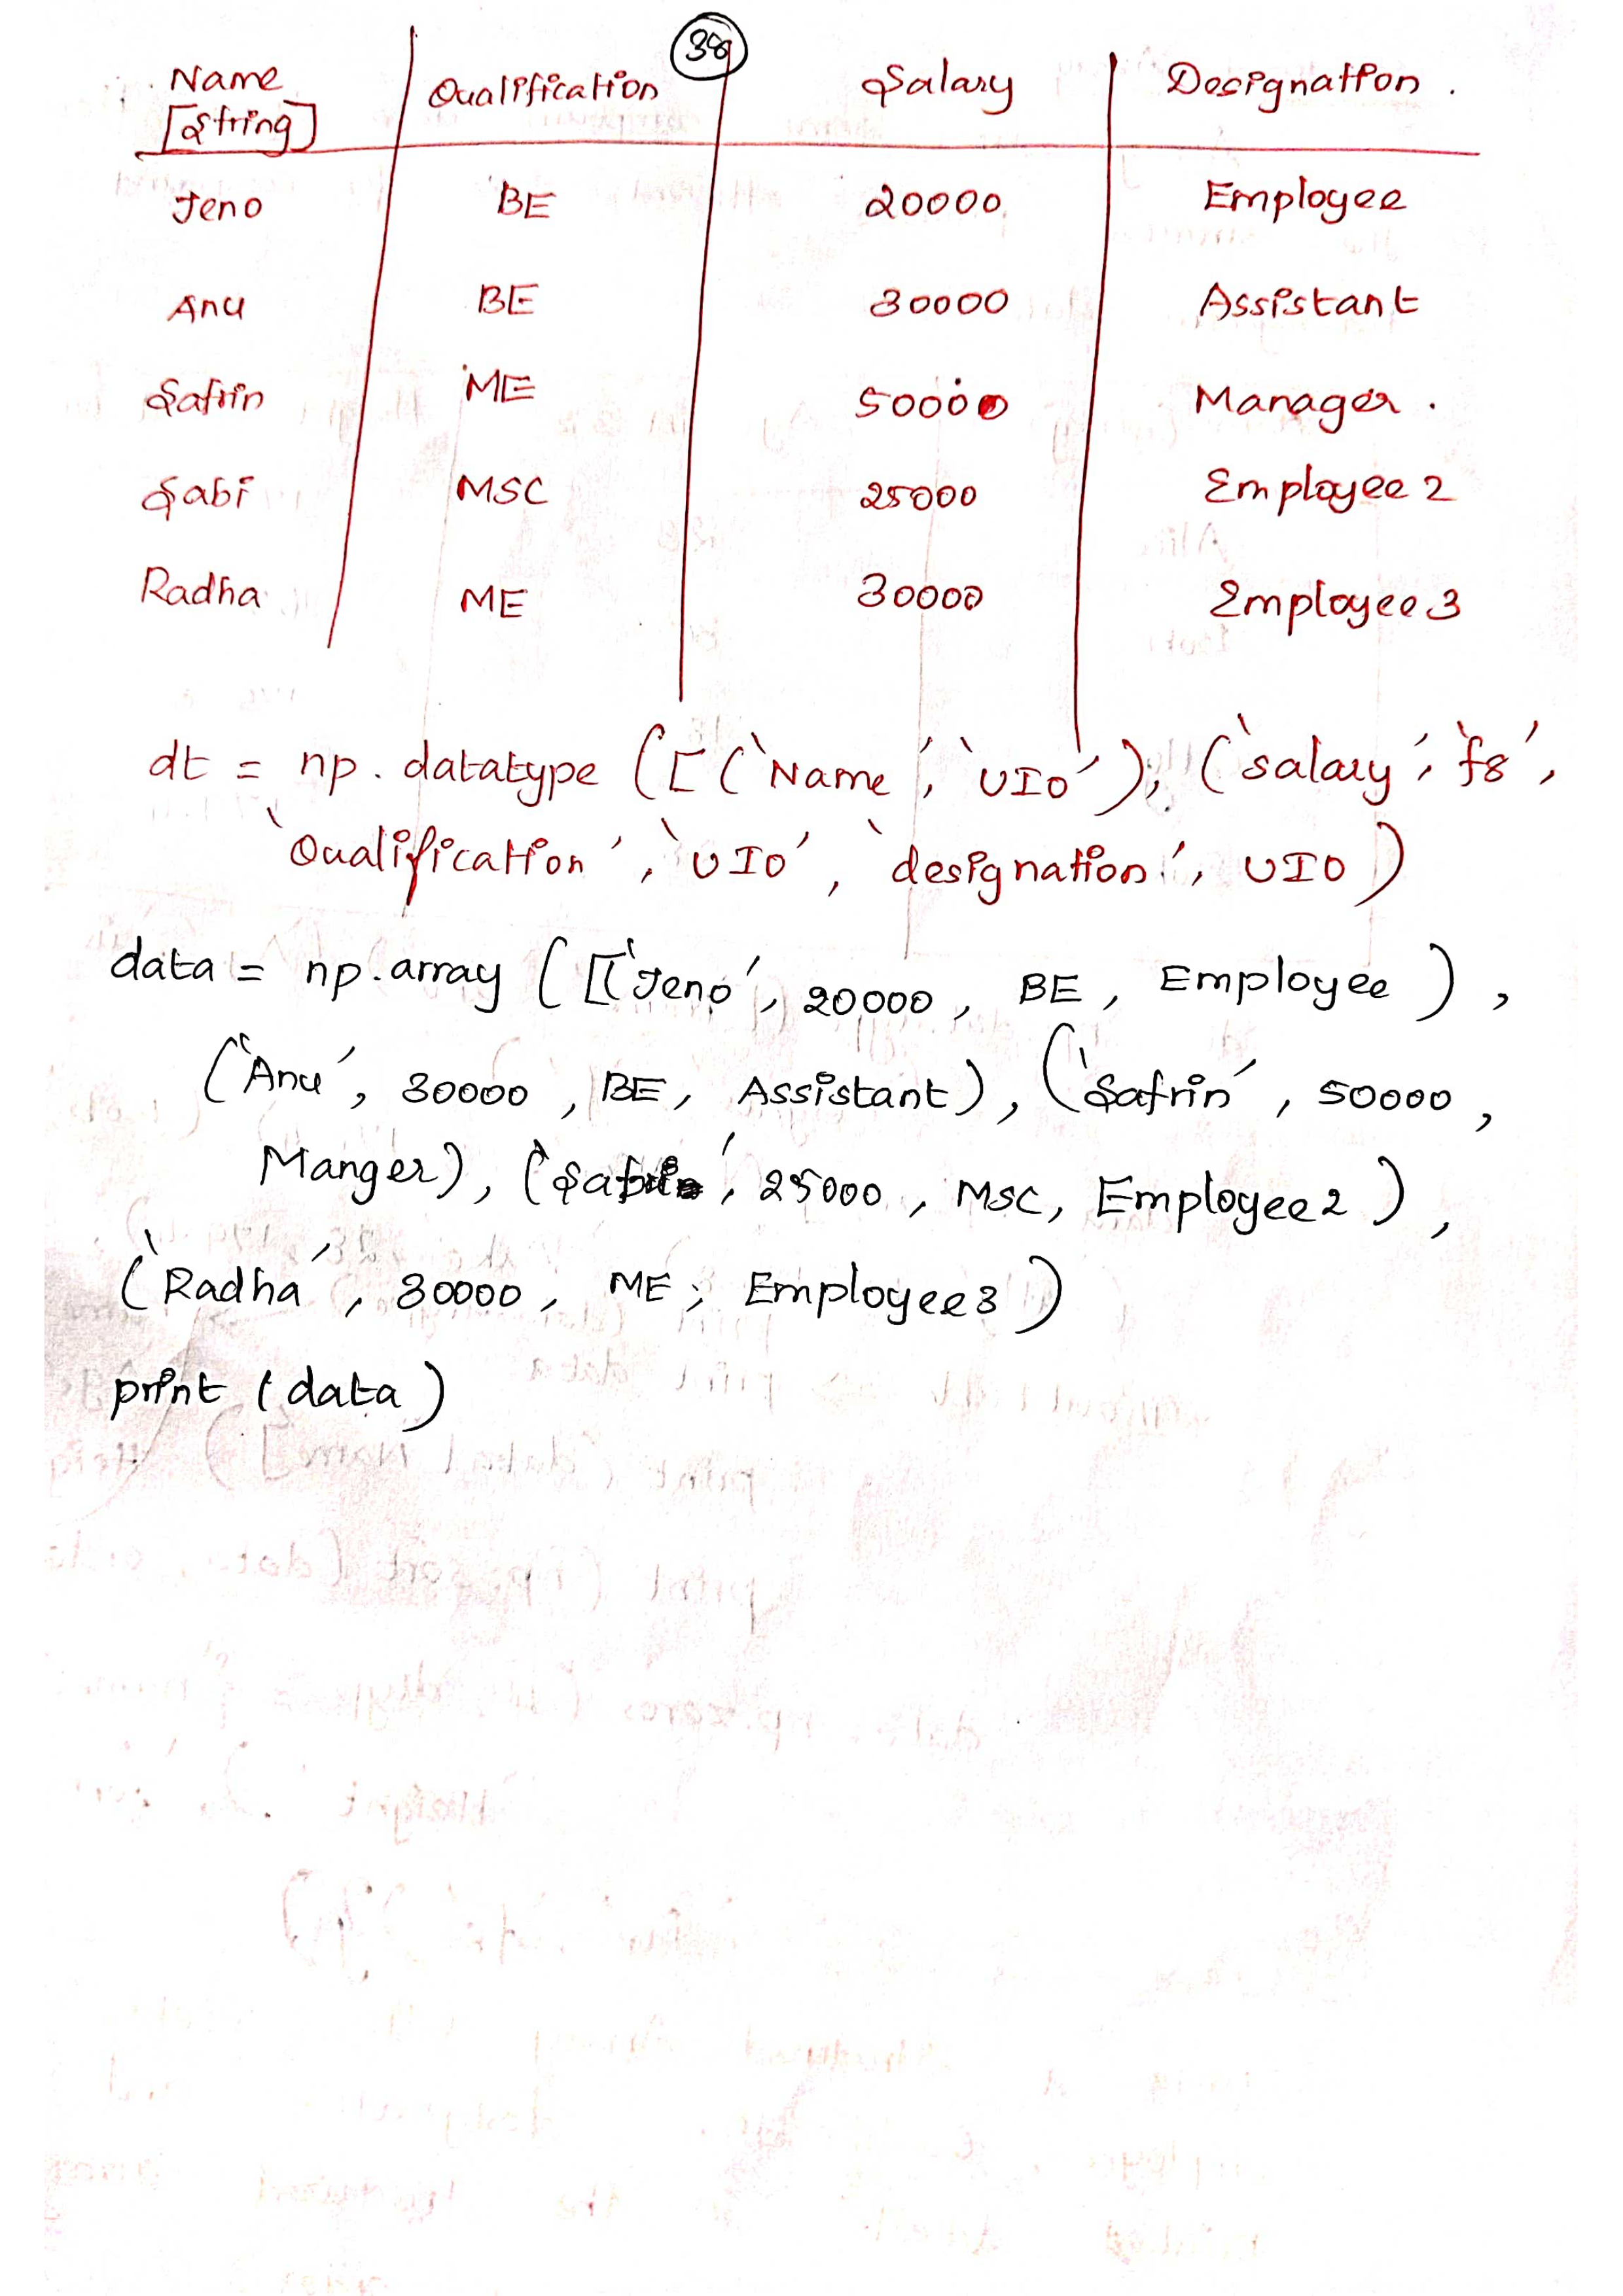 38
Name Qualification Salary Designation .
[String]
Jeno BE 20000 Employee
Anu BE 30000 Assistant
Safrin ME 50000 Manager .
Sabi MSC 25000 Employee 2
Radha ME 30000 Employee 3
dt = np . datatype ( [ ( 'Name', 'UIO' ), ( 'salary', 'f8',
'Qualification', 'UIO', 'designation', UIO )
data = np.array ( [('Jeno', 20000, BE, Employee ),
('Anu', 30000, BE, Assistant), ('Safrin', 50000,
Manger), ('Sabi', 25000, MSC, Employee 2 ),
('Radha', 30000, ME, Employee 3 )
print (data)